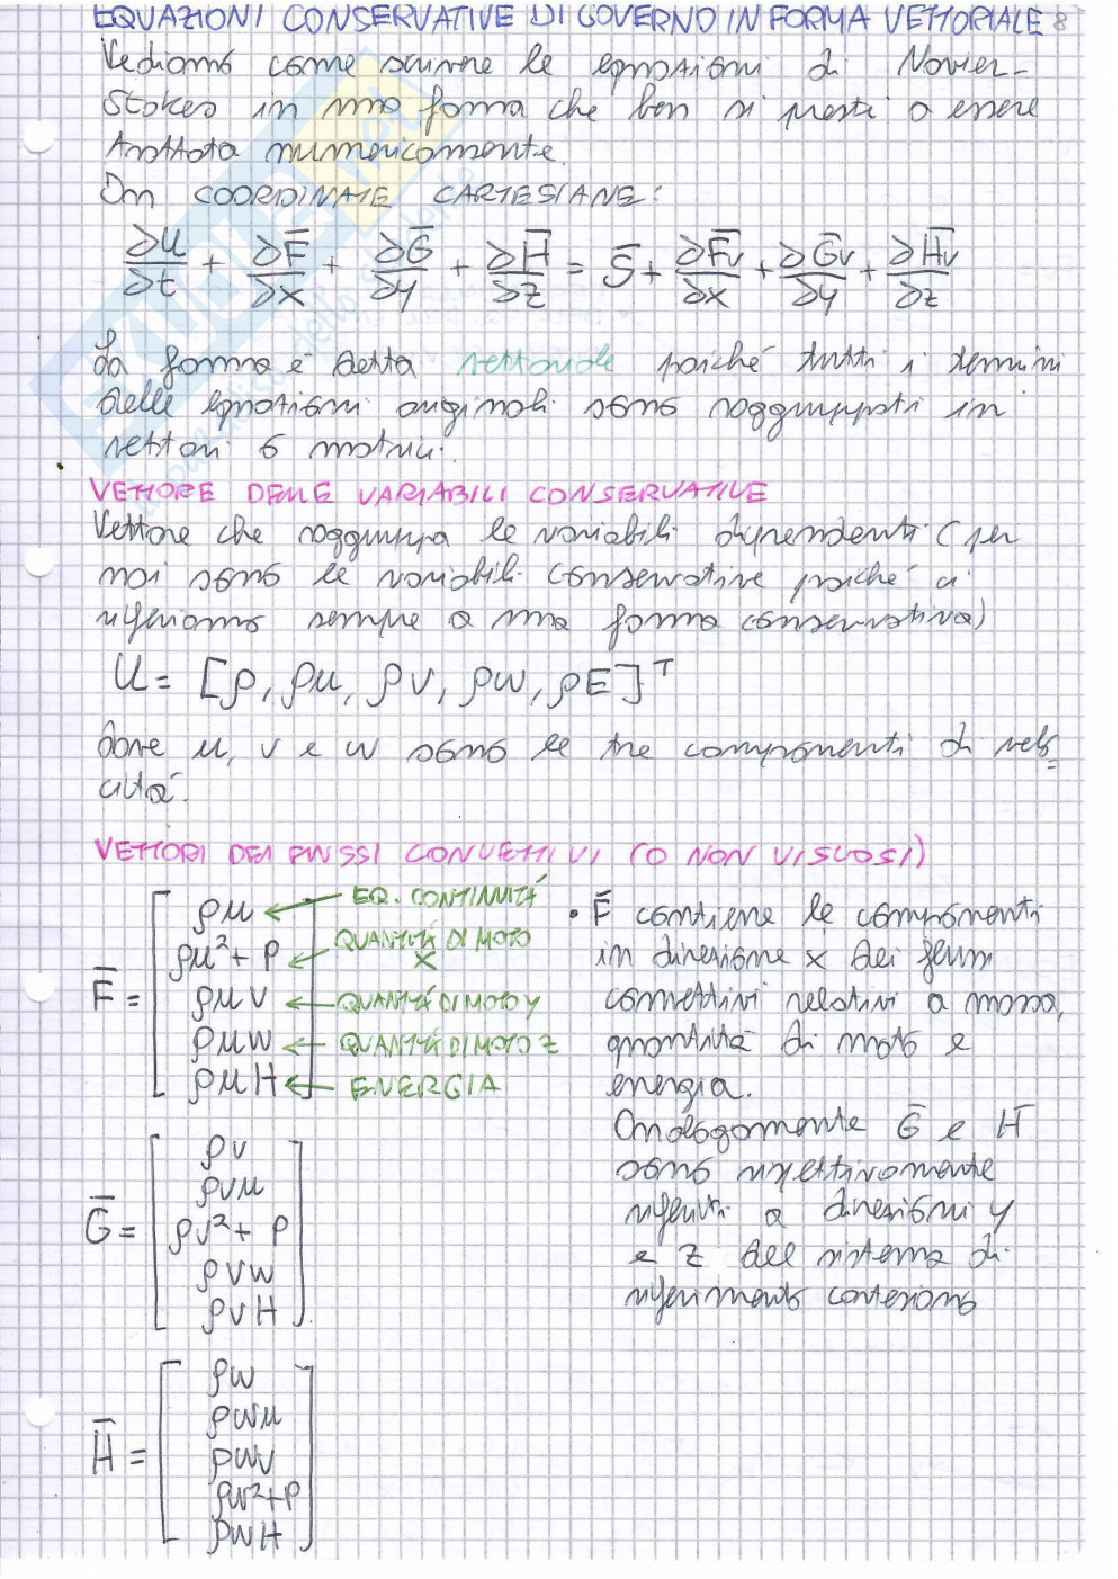 EQUAZIONI CONSERVATIVE DI GOVERNO IN FORMA VETTORIALE 8
Vediamo come scrivere le equazioni di Navier-
Stokes in una forma che ben si presti a essere
trattata numericamente.
In COORDINATE CARTESIANE:
∂U/∂t + ∂F̄/∂x + ∂Ḡ/∂y + ∂H̄/∂z = S̄ + ∂F̄v/∂x + ∂Ḡv/∂y + ∂H̄v/∂z
La forma è detta vettoriale poiché tutti i termini
delle equazioni originali sono raggruppati in
vettori o matrici.
VETTORE DELLE VARIABILI CONSERVATIVE
Vettore che raggruppa le variabili dipendenti (per
noi sono le variabili conservative poiché ci
riferiamo sempre a una forma conservativa)
U = [ρ, ρu, ρv, ρw, ρE]ᵀ
dove u, v e w sono le tre componenti di velo=
cità.
VETTORI DEI FLUSSI CONVETTIVI (O NON VISCOSI)
F̄ =
ρu ← EQ. CONTINUITÁ
ρu² + P ← QUANTITÁ DI MOTO X
ρuv ← QUANTITÁ DI MOTO Y
ρuw ← QUANTITÁ DI MOTO Z
ρuH ← ENERGIA
• F̄ contiene le componenti
in direzione x dei flussi
convettivi relativi a massa,
quantità di moto e
energia.
Analogamente Ḡ e H̄
sono rispettivamente
riferiti a direzioni y
e z del sistema di
riferimento cartesiano
Ḡ =
ρv
ρvu
ρv² + P
ρvw
ρvH
H̄ =
ρw
ρwu
ρwv
ρw²+P
ρwH